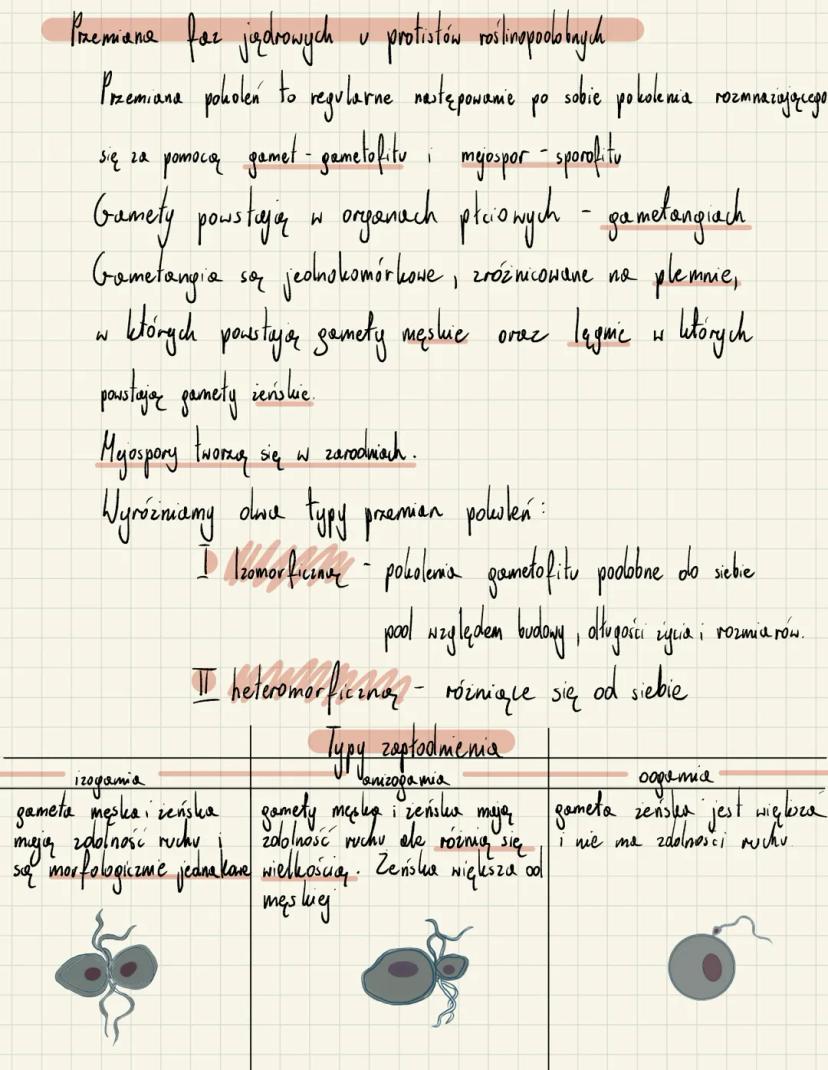 Przemiana faz jądrowych u protistów roślinopodobnych
Przemiana pokoleń to regularne następowanie po sobie pokolenia rozmnażającego
się za pomocą gamet - gametofitu i mejospor - sporofitu
Gamety powstają w organach płciowych - gametangiach
Gametangia są jednokomórkowe, zróżnicowane na plemnie,
w których powstają gamety męskie oraz lęgnie w których
powstają gamety żeńskie.
Mejospory tworzą się w zarodniach.
Wyróżniamy dwa typy przemian pokoleń:
I Izomorficzną - pokolenia gametofitu podobne do siebie
pod względem budowy, długości życia i rozmiarów.
II heteromorficzną - różniące się od siebie
Typy zapłodnienia
izogamia
gameta męska i żeńska
mają zdolność ruchu i
są morfologicznie jednakowe
anizogamia
gamety męska i żeńska mają
zdolność ruchu ale różnią się
wielkością. Żeńska większa od
męskiej
oogamia
gameta żeńska jest większa
i nie ma zdolności ruchu